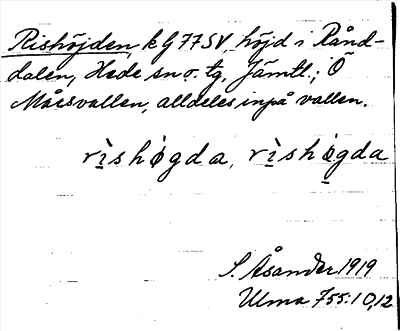 Rishöjden, k G77SV, höjd i Rånd-
dalen, Hede sn o. tg, Jämtl.; Ö
Måesvallen, alldeles inpå vallen.
rìshö́gda, rìshö́gda
S. Åsander 1919
Ulma 755:10,12